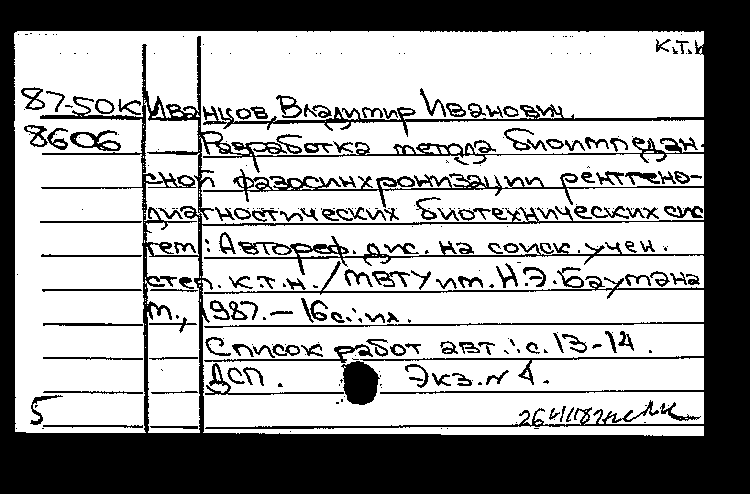 К.Т.Н
87-50К Иванцов, Владимир Иванович.
8606 Разработка метода биоимпедан-
сной фазосинхронизации рентгено-
диагностических биотехнических сис
тем : Автореф. дис. на соиск. учен.
степ. к.т.н. / МВТУ им. Н.Э. Баумана
М., 1987. — 16 с. : ил.
Список работ авт. : с. 13-14.
ДСП. Экз. N 4.
5